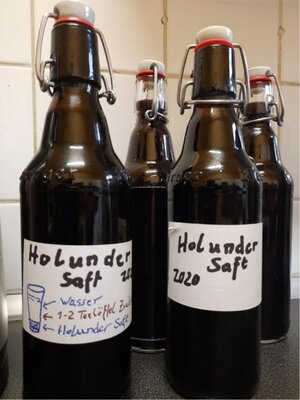 Holunder
Saft 202
Wasser
1-2 Teelöffel Zuck
Holunder Saft
Holunder
Saft
2020